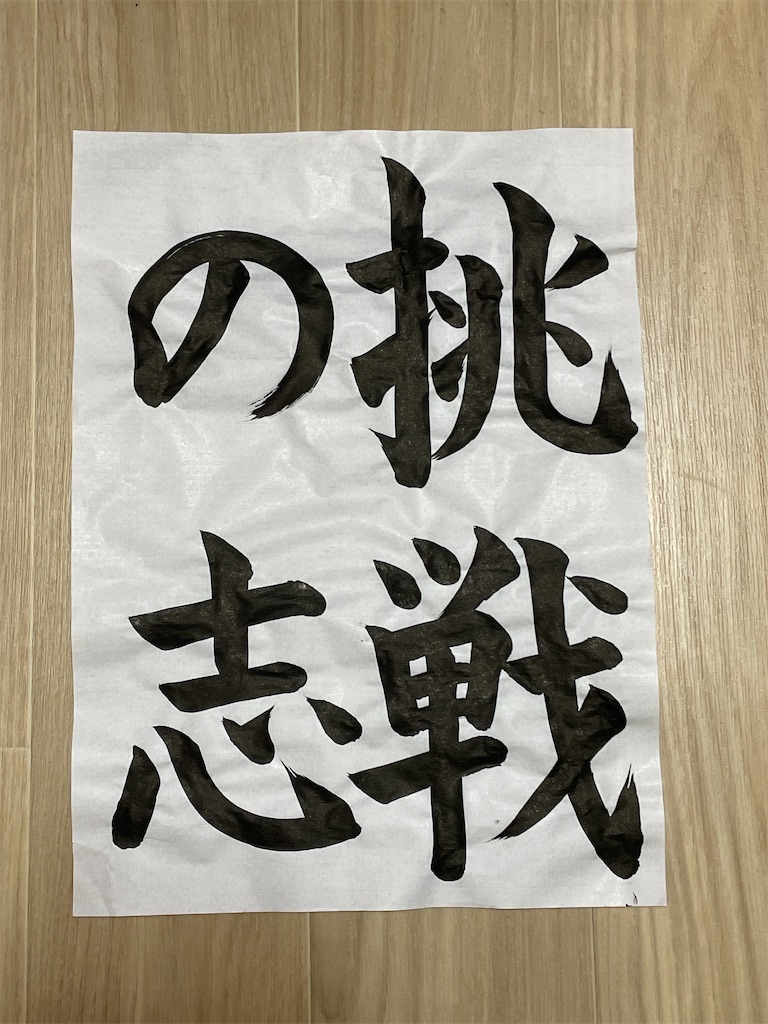 挑戦
の志